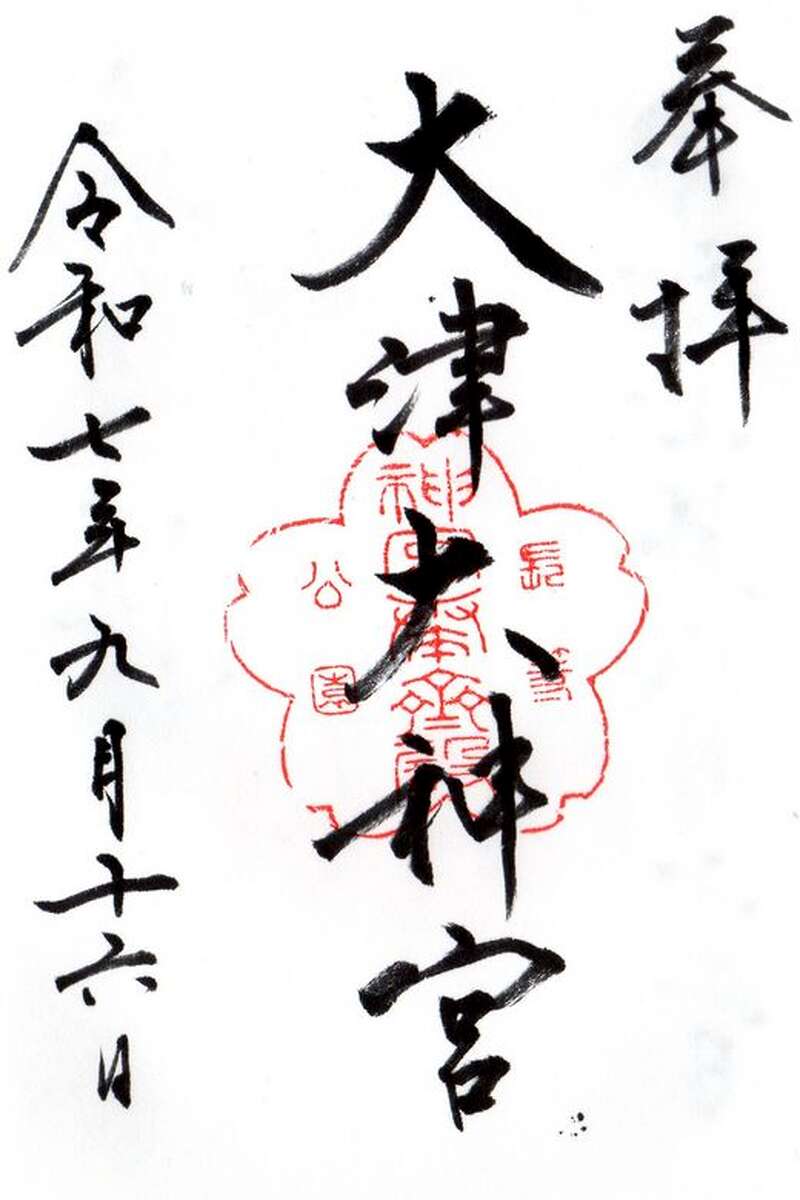 奉拝
大津大神宮
令和七年九月十六日
長等
公園